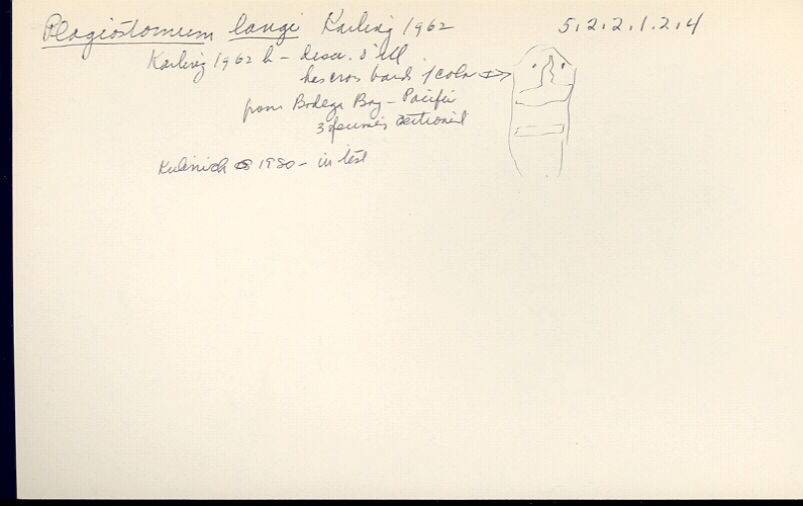 Plagiostomum langi Karling 1962 5.2.2.1.2.4
Karling 1962 b - descr. & ill.
has cros band / color
from Bodega Bay - Pacific
3 specimens sectioned
Kulinich 1980 - in list